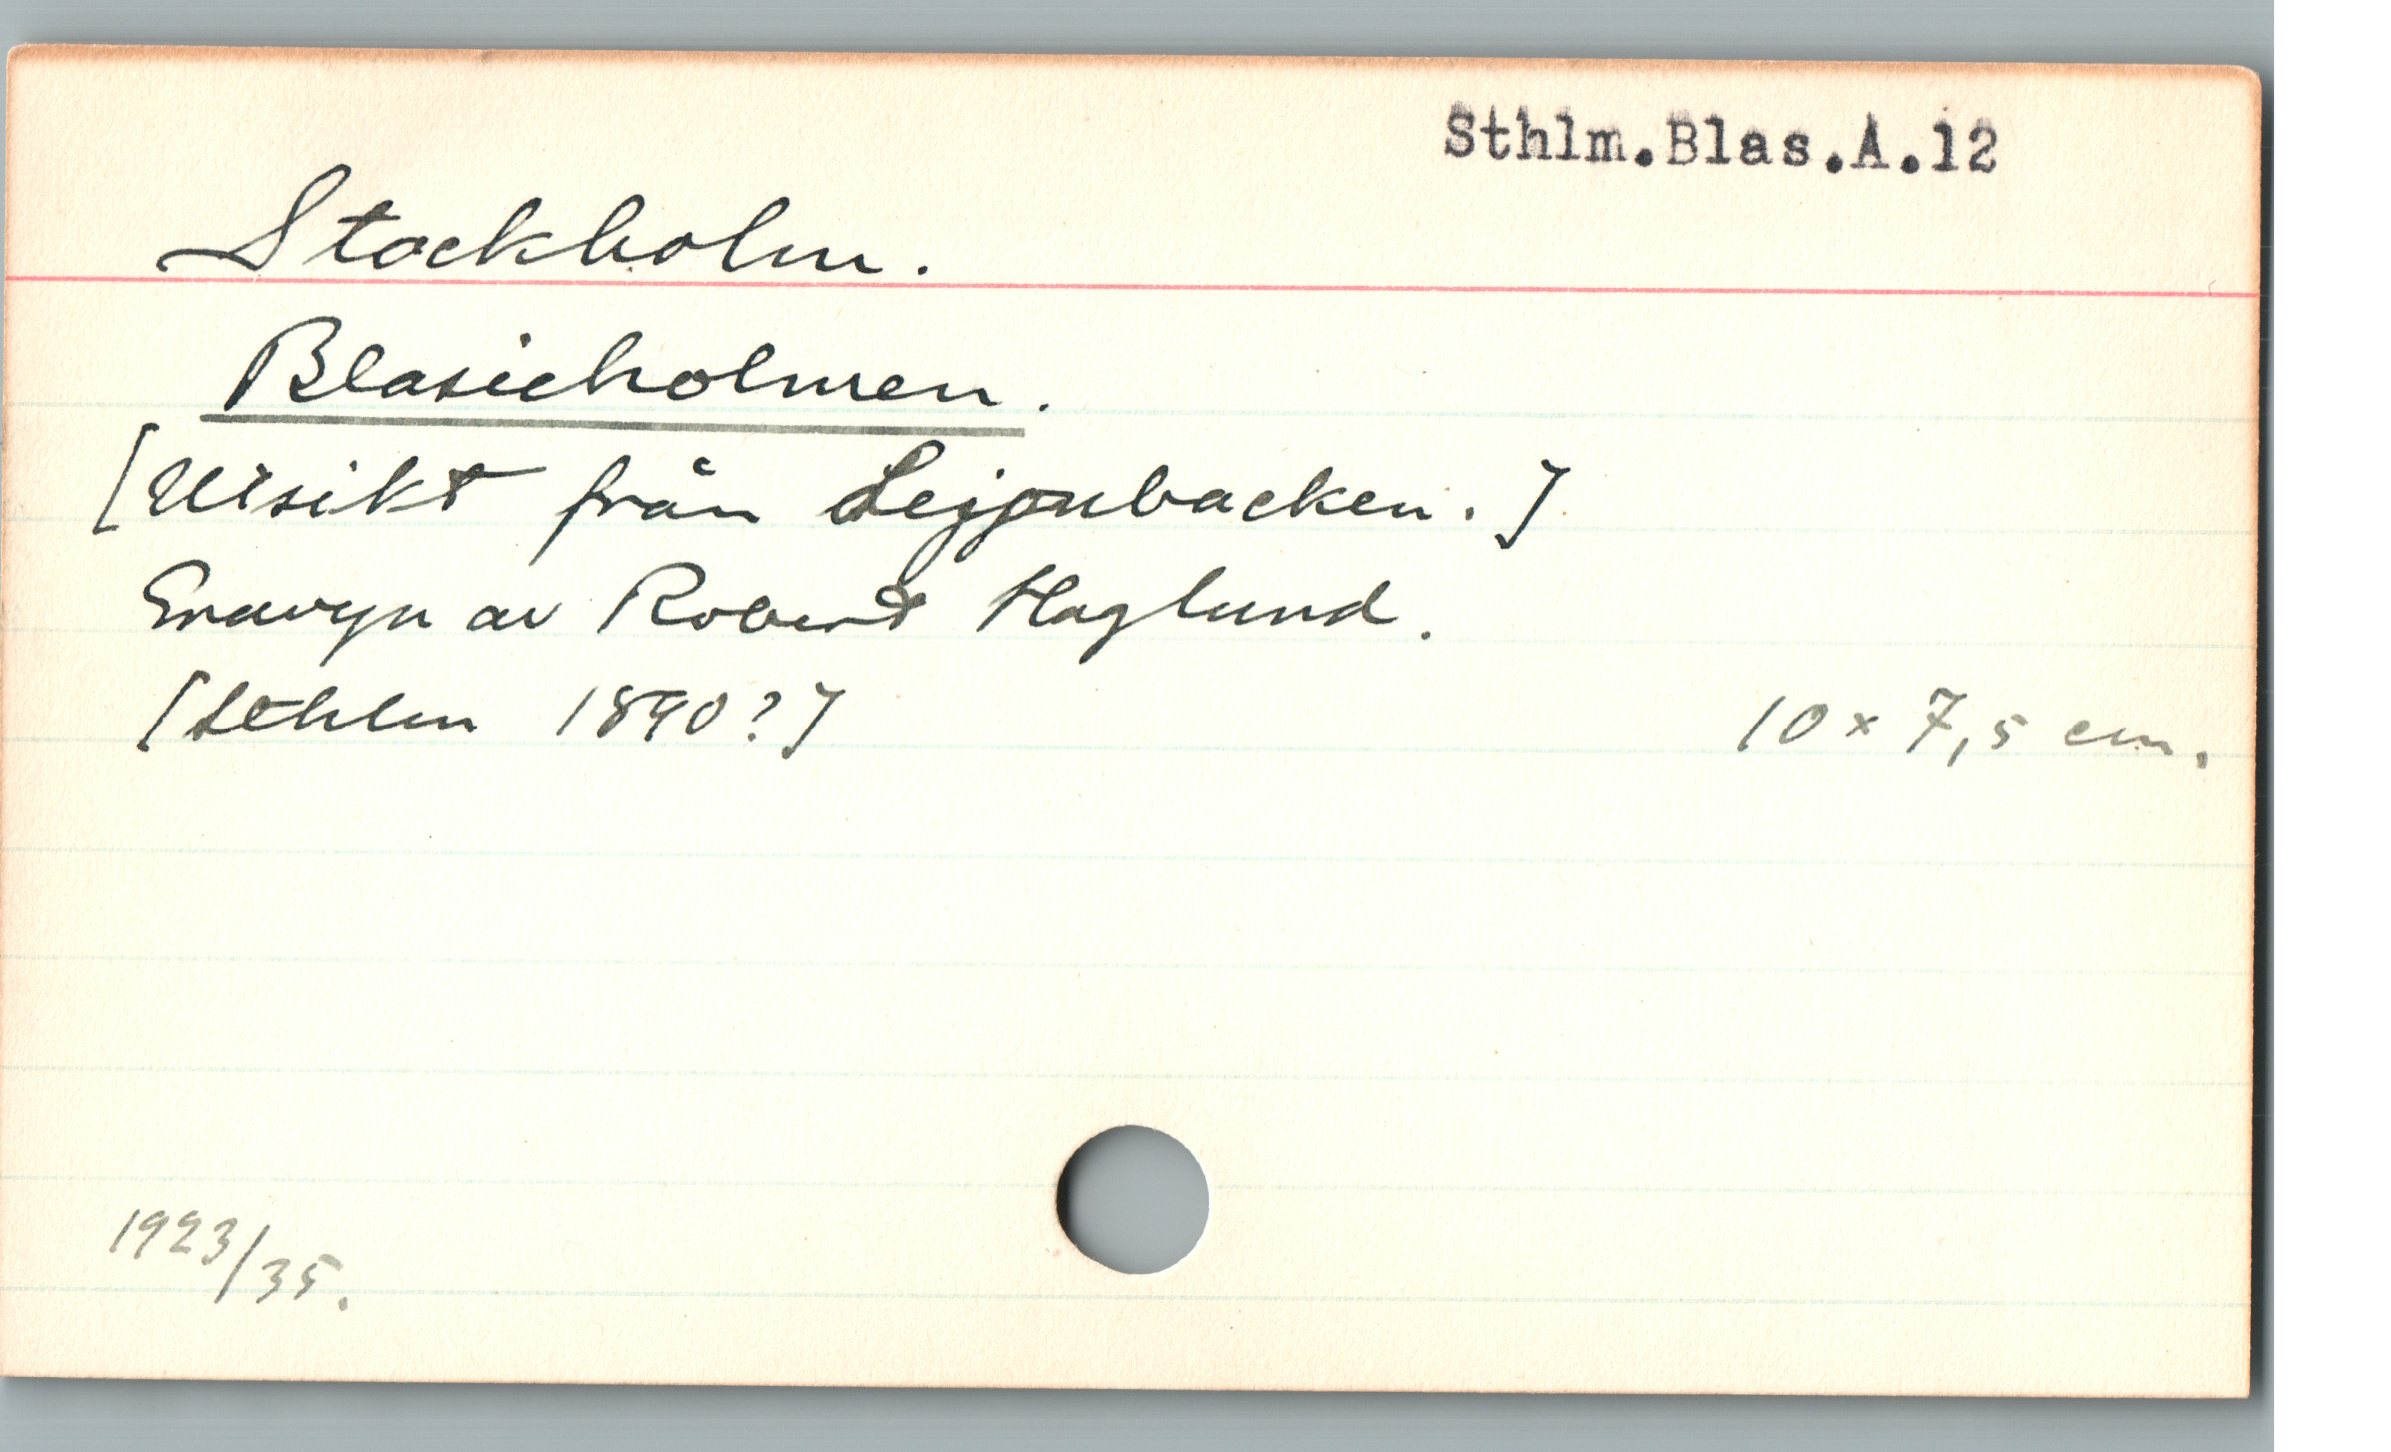 Sthlm.Blas.A.12
Stockholm.
Blasieholmen.
[Utsikt från Lejonbacken.]
Gravyr av Robert Haglund.
[Sthlm 1890?] 10 x 7,5 cm.
1923/35.